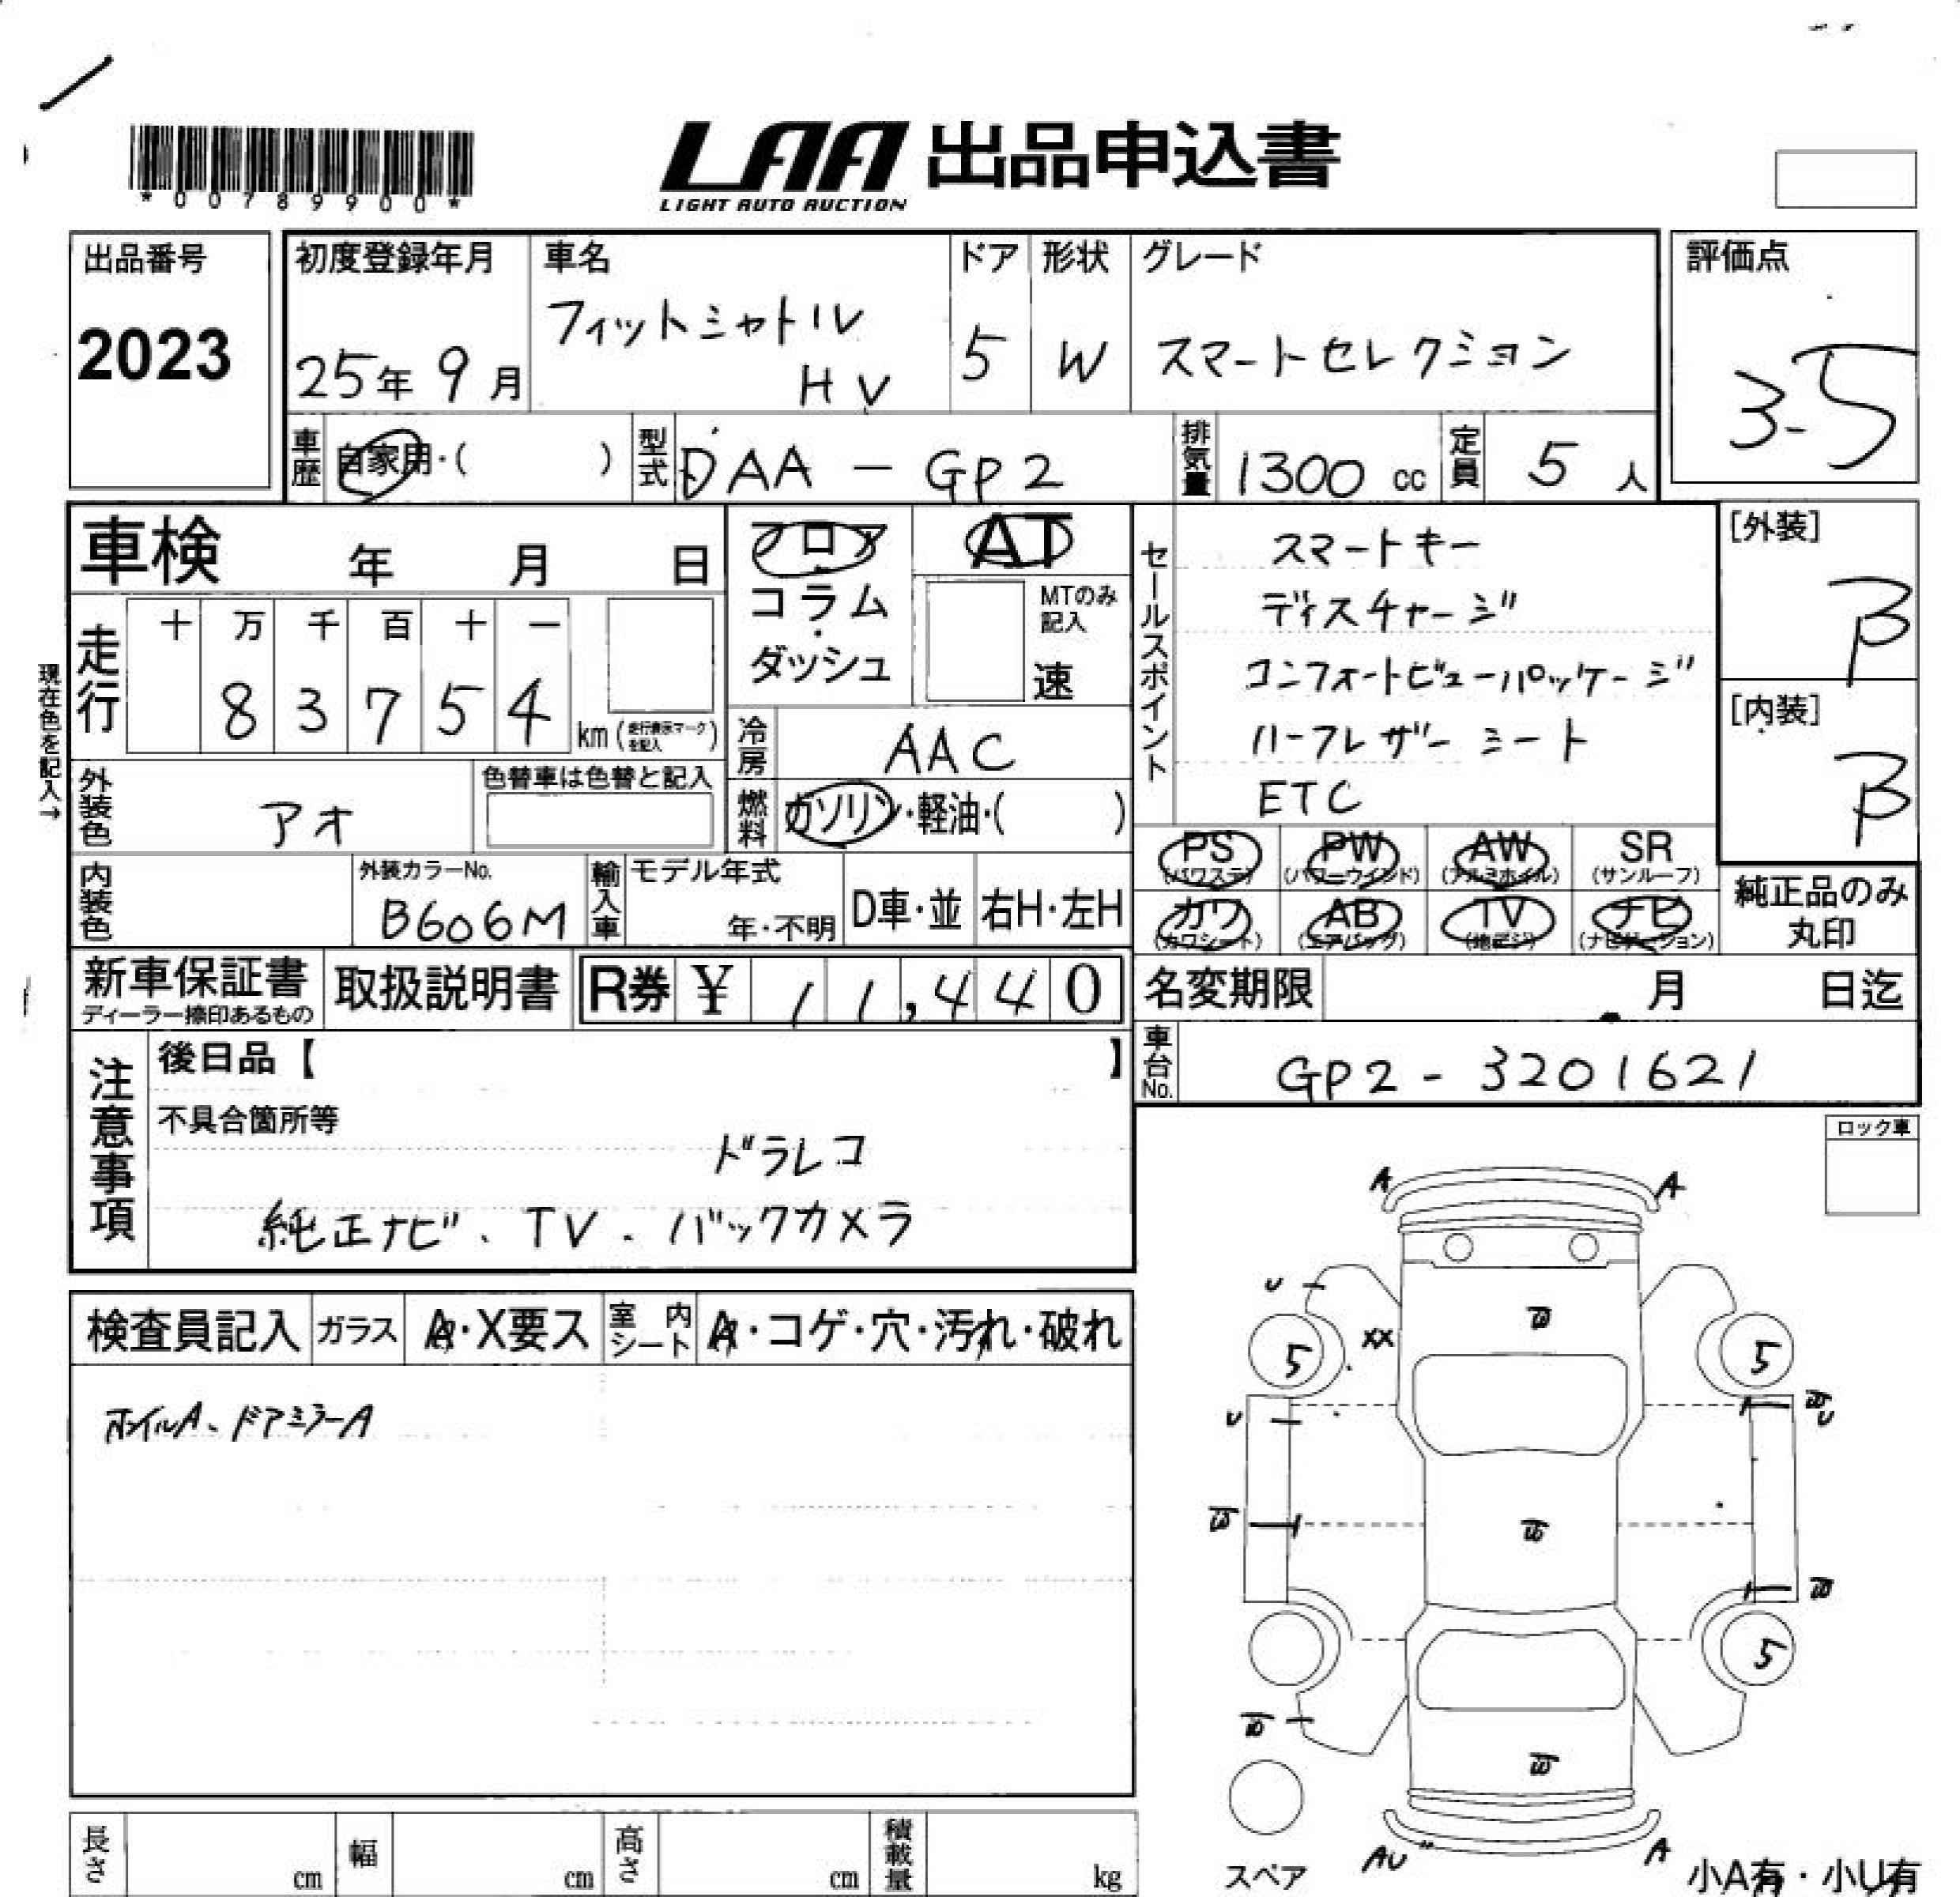 *00789900*
LAA 出品申込書
LIGHT AUTO AUCTION
出品番号
2023
初度登録年月
25年 9月
車名
フィットシャトル
HV
ドア
5
形状
W
グレード
スマートセレクション
評価点
3.5
車歴
自家用・( )
型式
DAA - GP2
排気量
1300 cc
定員
5 人
車検 年 月 日
走行
十 万 千 百 十 一
8 3 7 5 4
km (走行表示マークを記入)
現在色を記入→
フロア
・
コラム
・
ダッシュ
AT
MTのみ
記入
速
冷房
AAC
燃料
ガソリン・軽油・( )
外装色
アオ
色替車は色替と記入
内装色
外装カラーNo.
B606M
輸入車
モデル年式
年・不明
D車・並
右H・左H
セールスポイント
スマートキー
ディスチャージ
コンフォートビューパッケージ
ハーフレザーシート
ETC
[外装]
β
[内装]
β
PS
(パワステ)
PW
(パワーウインド)
AW
(アルミホイル)
SR
(サンルーフ)
カワ
(カワシート)
AB
(エアバッグ)
TV
(地デジ)
ナビ
(ナビゲーション)
純正品のみ
丸印
新車保証書
ディーラー捺印あるもの
取扱説明書
R券 ¥ 11,440
名変期限 月 日迄
車台No.
GP2 - 3201621
注意事項
後日品【 】
不具合箇所等
ドラレコ
純正ナビ、TV、バックカメラ
ロック車
検査員記入
ガラス
A・X要ス
室内
シート
A・コゲ・穴・汚れ・破れ
ホイルA、ドアミラーA
A A
U
XX
W
5 5
U
W U
W
W
W
5
W
W
スペア
AU A
小A有・小U有
長さ cm
幅 cm
高さ cm
積載量 kg